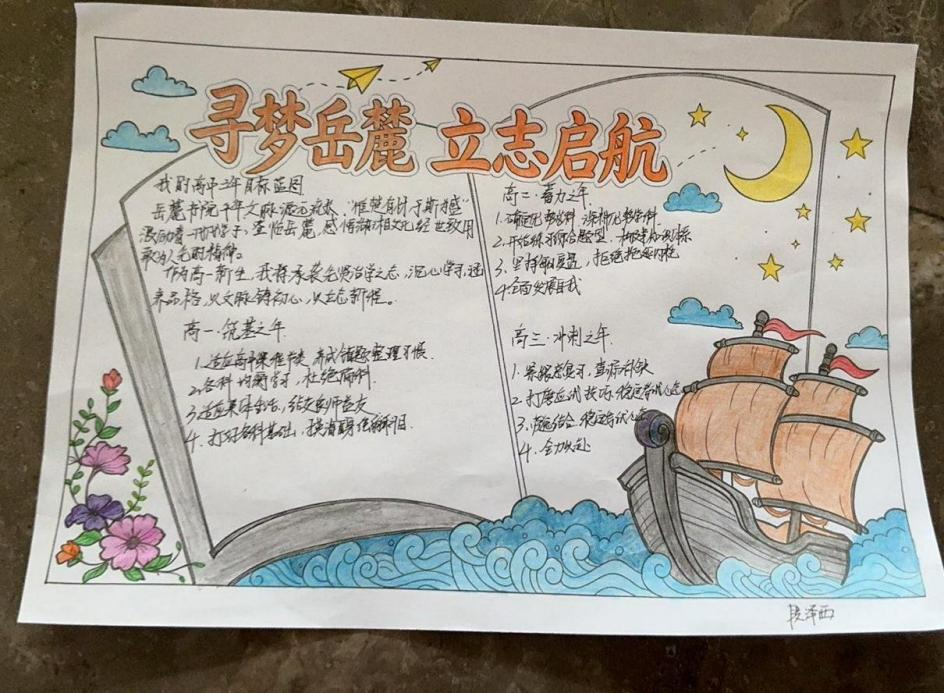 寻梦岳麓 立志启航
我的高中三年目标蓝图
岳麓书院千年文脉源远流长,"惟楚有材于斯为盛"
激励着一代代学子,坐临岳麓,感悟湖湘文化经世致用
敢为人先的精神。
作为高一新生,我将承袭先贤治学之志,沉心学习,
养品格,以文脉铸初心,以立志新程。
高一·筑基之年
1.适应高中课程节奏 养成错题整理习惯
2.各科均衡学习,杜绝偏科
3.适应集体生活,结交良师益友
4.打好各科基础,
高二·蓄力之年
1.确定优势学科 深耕优势学科
2.开始练习综合题型,构建知识体系
3.坚持复盘,拒绝拖延内耗
4.全面发展自我
高三·冲刺之年
1.系统总复习,查漏补缺
2.打磨应试技巧,稳定考试心态
3.劳逸结合 稳定考试心态
4.全力以赴
段泽西